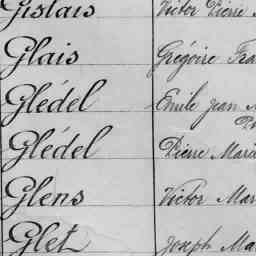 Gislais Victor Pierre
Glais Grégoire Fra
Glédel Emile Jean M
Glédel Pierre Marie
Glens Victor Mar
Glet Joseph Ma